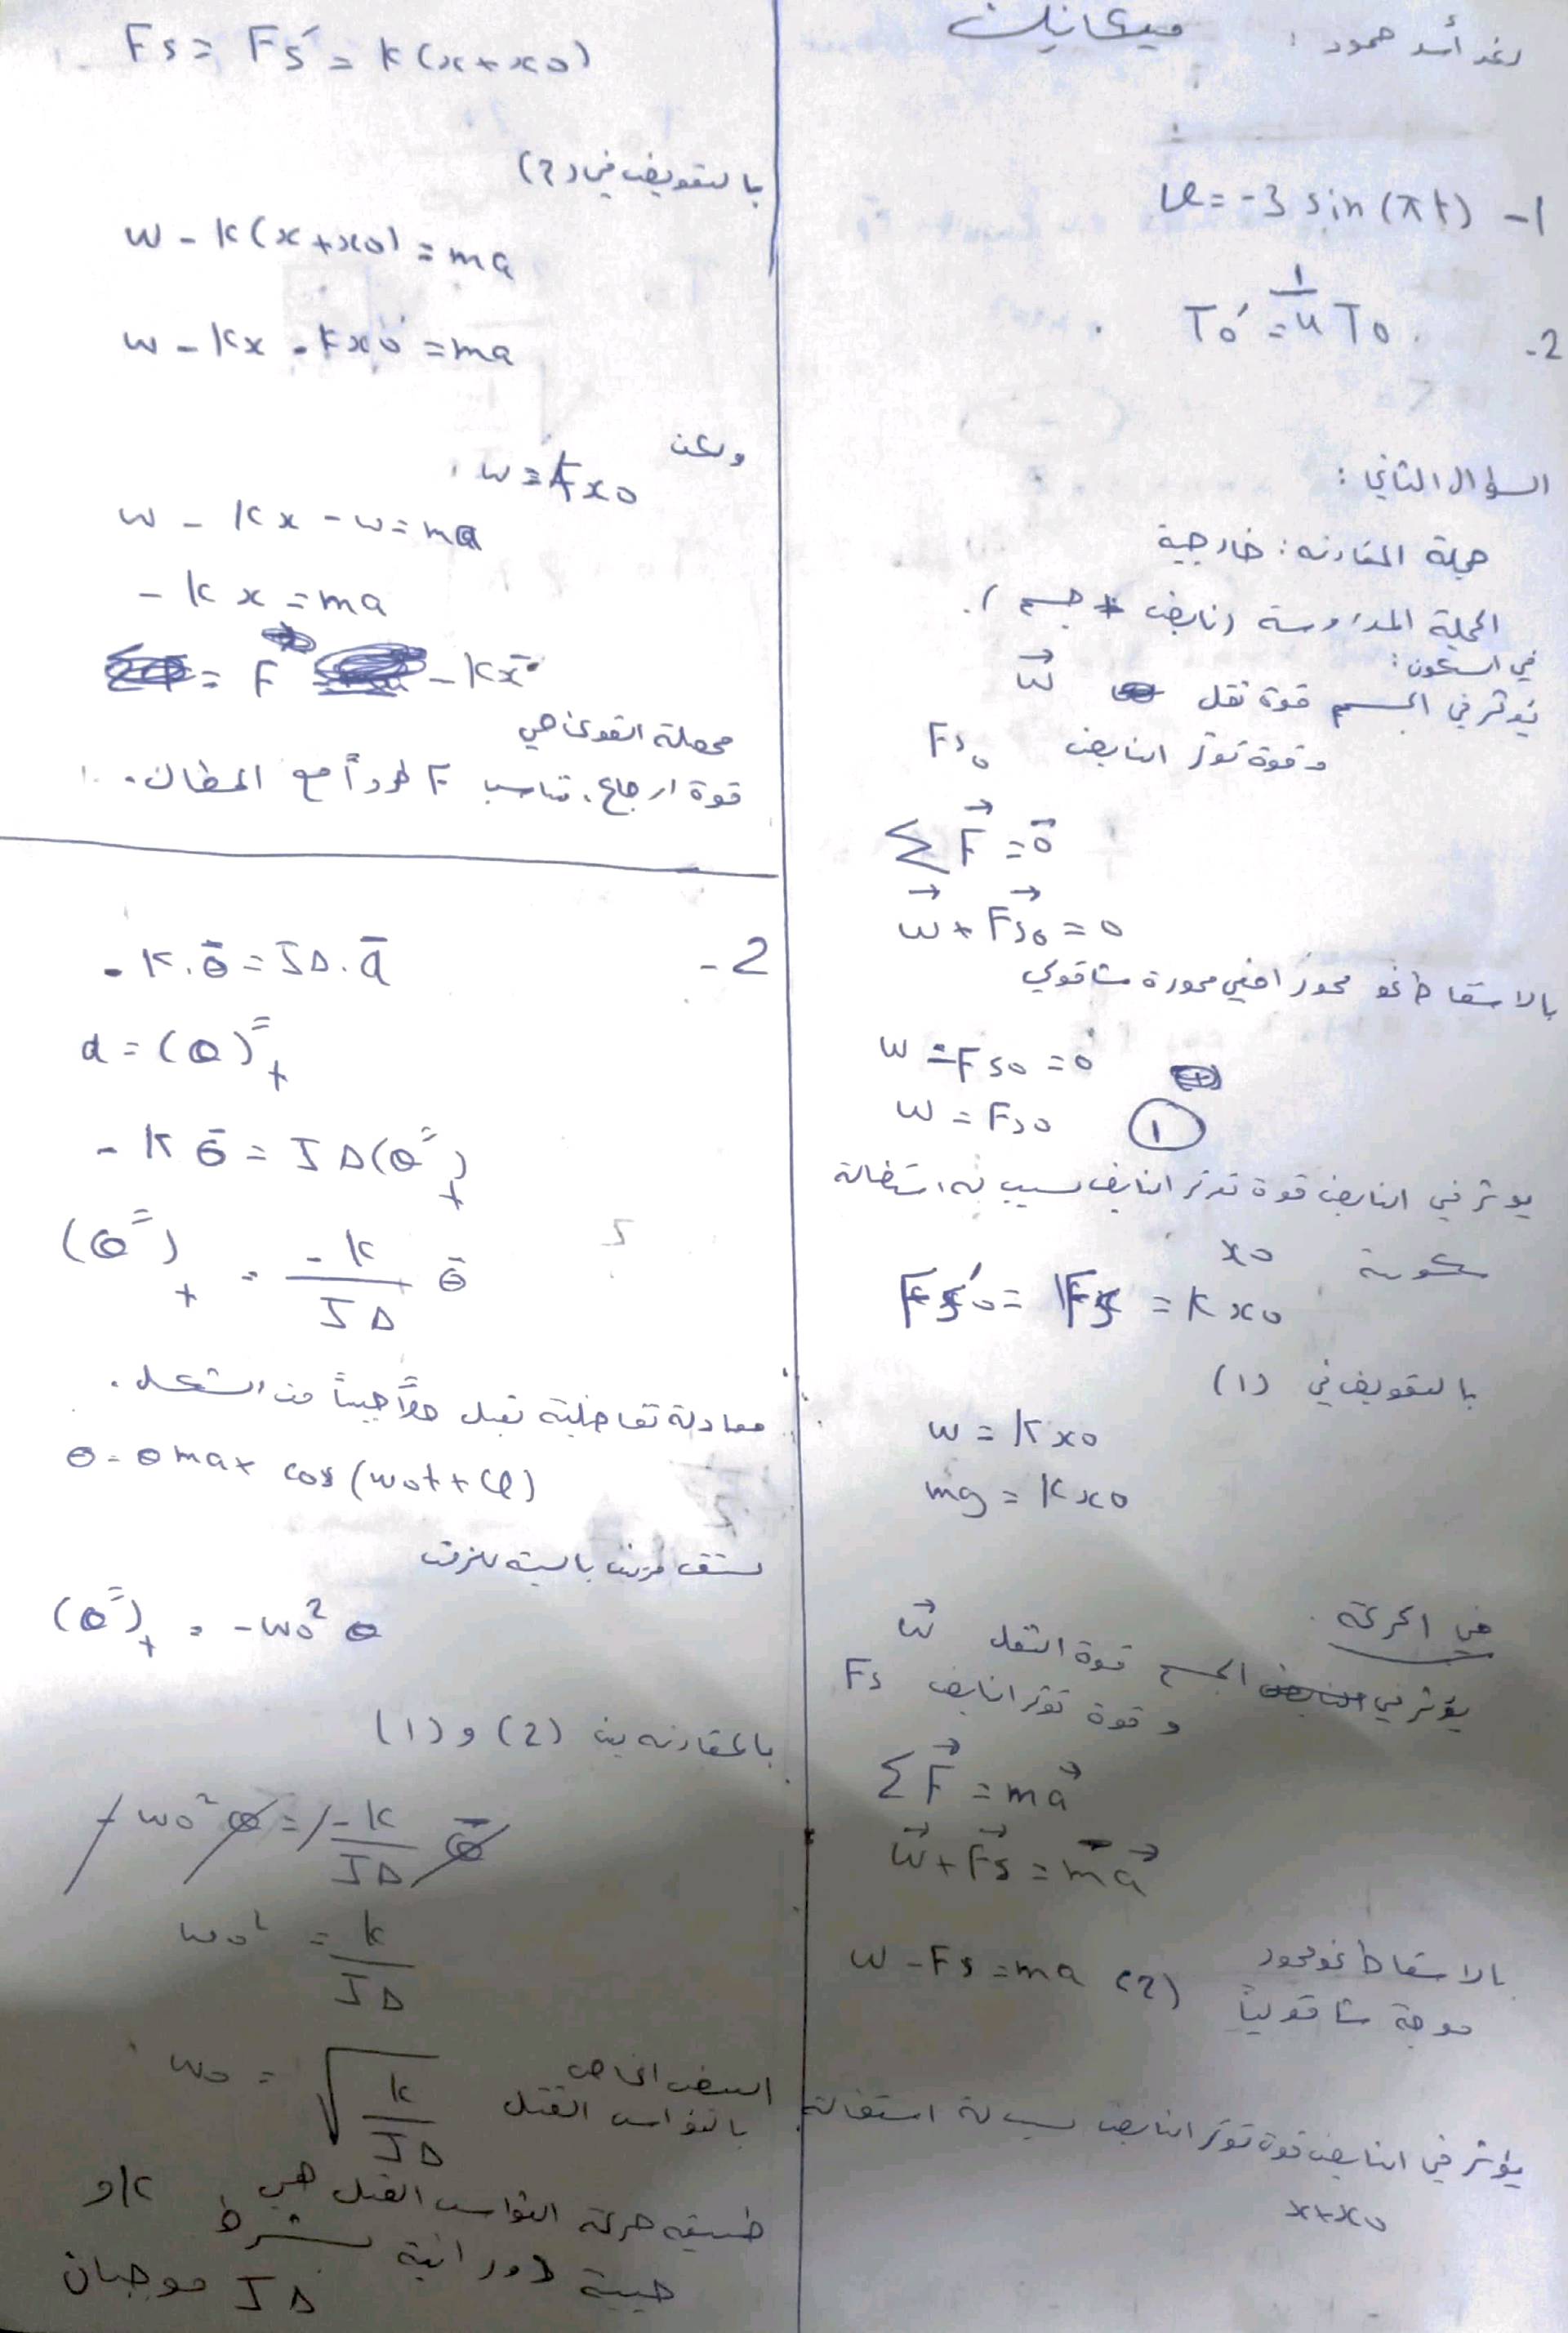 رغد أسد حمود : ميكانيك
1- v = -3 sin(πt)
2- T₀' = 1/4 T₀
السؤال الثاني :
جملة المقارنه : خارجية
الجملة المدروسة (نابض + جسم).
في السكون :
يؤثر في الجسم قوة ثقل w⃗
و قوة توتر النابض Fs₀
∑F⃗ = 0⃗
w⃗ + F⃗s₀ = 0
بالاسقاط نحو محور شاقولي
w - Fs₀ = 0
w = Fs₀ (1)
يوثر في النابض قوة توتر النابض تسبب له استطالة
سكونية x₀
Fs'₀ = Fs = kx₀
بالتعويض في (1)
w = kx₀
mg = kx₀
في الحركة
يؤثر في الجسم قوة الثقل w⃗
و قوة توتر النابض Fs
∑F⃗ = ma⃗
w⃗ + F⃗s = ma⃗
بالاسقاط نحو محور w - Fs = ma (2)
موجة شاقولياً
يؤثر في النابض قوة توتر النابض تسبب له استطالة
x+x₀
Fs = Fs' = k(x+x₀)
بالتعويض في (2)
w - k(x+x₀) = ma
w - kx - kx₀ = ma
ولكن w = kx₀
w - kx - w = ma
- kx = ma
= F - kx̄
محصلة القوى هي
قوة ارجاع، تناسب F طرداً مع المطال.
2- - k.θ̄ = IΔ.ᾱ
α = (θ)″t
- kθ̄ = IΔ(θ)″t
(θ)″t = -k/IΔ θ̄
معادلة تفاضلية تقبل حلاً جيبياً من الشكل.
θ = θmax cos(ω₀t + φ)
نشتق مرتين بالنسبة للزمن
(θ)″t = -ω₀² θ
بالمقارنه بين (2) و (1)
-ω₀² θ = -k/IΔ θ̄
ω₀² = k/IΔ
ω₀ = √(k/IΔ) النبض الخاص
بالنواس الفتل
طبيعه حركة النواس الفتل هي
جيبية دورانية بشرط k و
IΔ موجبان